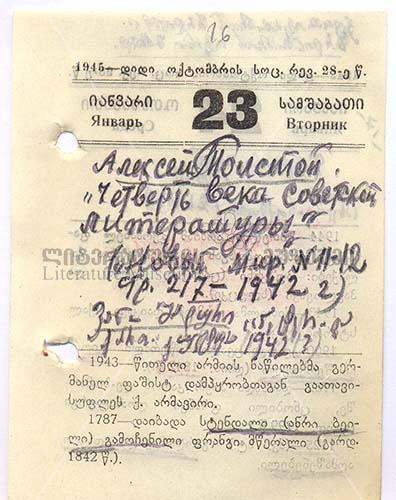 16
1945—დიდი ოქტომბრის სოც. რევ. 28-ე წ.
იანვარი 23 სამშაბათი
Январь Вторник
Алексей Толстой.
„Четверть века советской
литературы“
Мир. N 11-12
стр. 217 — 1942 г)
1942 г)
1943—წითელი არმიის ნაწილებმა გერ-
მანელ ფაშისტ დამპყრობთაგან გაათავი-
სუფლეს ქ. არმავირი.
1787—დაიბადა სტენდალი (ანრი ბეი-
ლი) გამოჩენილი ფრანგი მწერალი (გარდ.
1842 წ.).